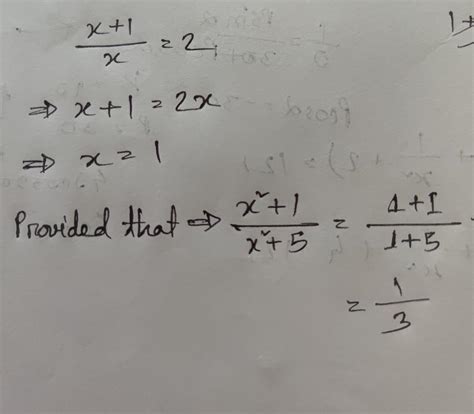 (x+1)/x = 2
⇒ x+1 = 2x
⇒ x = 1
Provided that ⇒ (x²+1)/(x²+5) = (1+1)/(1+5)
= 1/3
1+